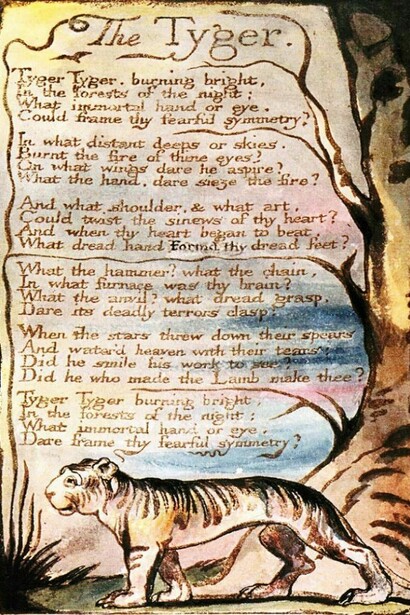 The Tyger.
Tyger Tyger. burning bright,
In the forests of the night:
What immortal hand or eye.
Could frame thy fearful symmetry?
In what distant deeps or skies.
Burnt the fire of thine eyes?
On what wings dare he aspire?
What the hand, dare sieze the fire?
And what shoulder, & what art,
Could twist the sinews of thy heart?
And when thy heart began to beat,
What dread hand Formd thy dread feet?
What the hammer? what the chain,
In what furnace was thy brain?
What the anvil? what dread grasp,
Dare its deadly terrors clasp?
When the stars threw down their spears
And water'd heaven with their tears:
Did he smile his work to see?
Did he who made the Lamb make thee?
Tyger Tyger burning bright,
In the forests of the night:
What immortal hand or eye,
Dare frame thy fearful symmetry?